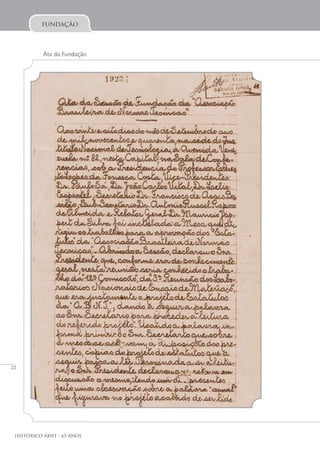 FUNDAÇÃO
Ata da Fundação
1923
Ata da Sessão de Fundação da "Associação
Brasileira de Normas Tecnicas"
Aos vinte e oito dias do mês de Setembro do ano
de mil novecentos e quarenta, na sede do Ins-
tituto Nacional de Tecnologia, á Avenida Vene-
zuela nº 82, nesta Capital, na Sala de Confe-
rencias, sob a Presidencia do Professor Ernes-
to Lopes da Fonseca Costa, Vice-Presidentes
Dr. Paulo Sá, Dr. João Carlos Vital, Dr. Carlos
Secretario Dr. Francisco de Assis Ba-
silio, Sub-Secretario Dr. Antonio Russel Raposo
de Almeida e Relator Geral Dr. Mauricio Jop-
pert da Silva foi instalada a Mesa que di-
rigiu os trabalhos para a aprovação dos "Esta-
tutos da "Associação Brasileira de Normas
Tecnicas". Abrindo a Sessão, declarou o Snr.
Presidente que, conforme era do conhecimento
geral, nesta reunião seria conhecido o traba-
lho da 12ª Comissão, da 3ª Reunião dos Labo-
ratorios Nacionais de Ensaio de Materiais,
que era justamente o projeto de Estatutos
da "A.B.N.T.", dando a seguir a palavra
ao Snr. Secretario para proceder a leitura
do referido projeto. Usando a palavra, in-
forma primeiro o Snr. Secretario que sobre
a mesa se achavam, a disposição dos pre-
sentes, copias do projeto de estatutos que a
seguir passa a ler. Terminada a sua leitu-
ra, o Snr. Presidente declarou que estava em
discussão o mesmo, tendo um dos presentes
feito uma observação sobre a palavra "anual"
que figurava no projeto acabado de ser lido.
22
HISTÓRICO ABNT - 65 ANOS